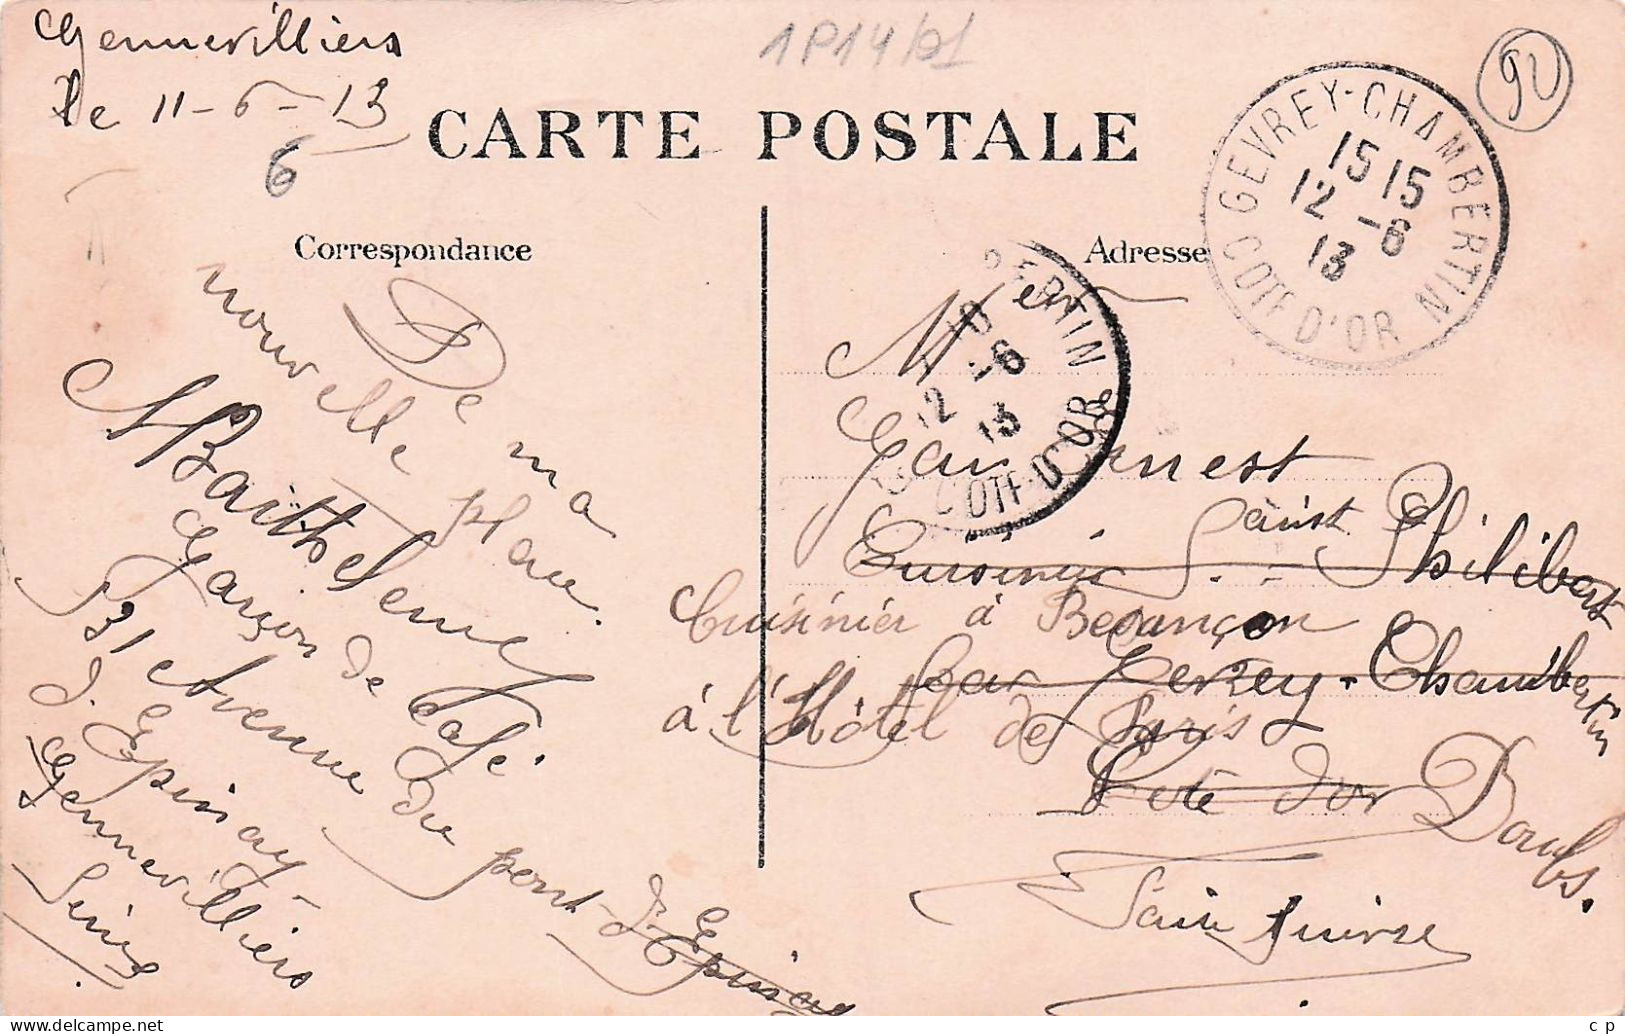 Gennevilliers
le 11-6-13
6
1P14/91
92
CARTE POSTALE
Correspondance
Adresse
GEVREY-CHAMBERTIN
15 15
12 -6
13
COTE D'OR
BERTIN
12 -6
13
COTE-D'OR
De ma
nouvelle place
Barthelemy
Garçon de Café
31 Avenue du pont d'Epinay
d'Epinay
Gennevilliers
Seine
Mr
Ernest
Cuisinier Saint Philibert
Cuisinier à Besançon
par Gevrey-Chambertin
à l'Hôtel de Paris
Cote d'or
Doubs.
Faire suivre
c p